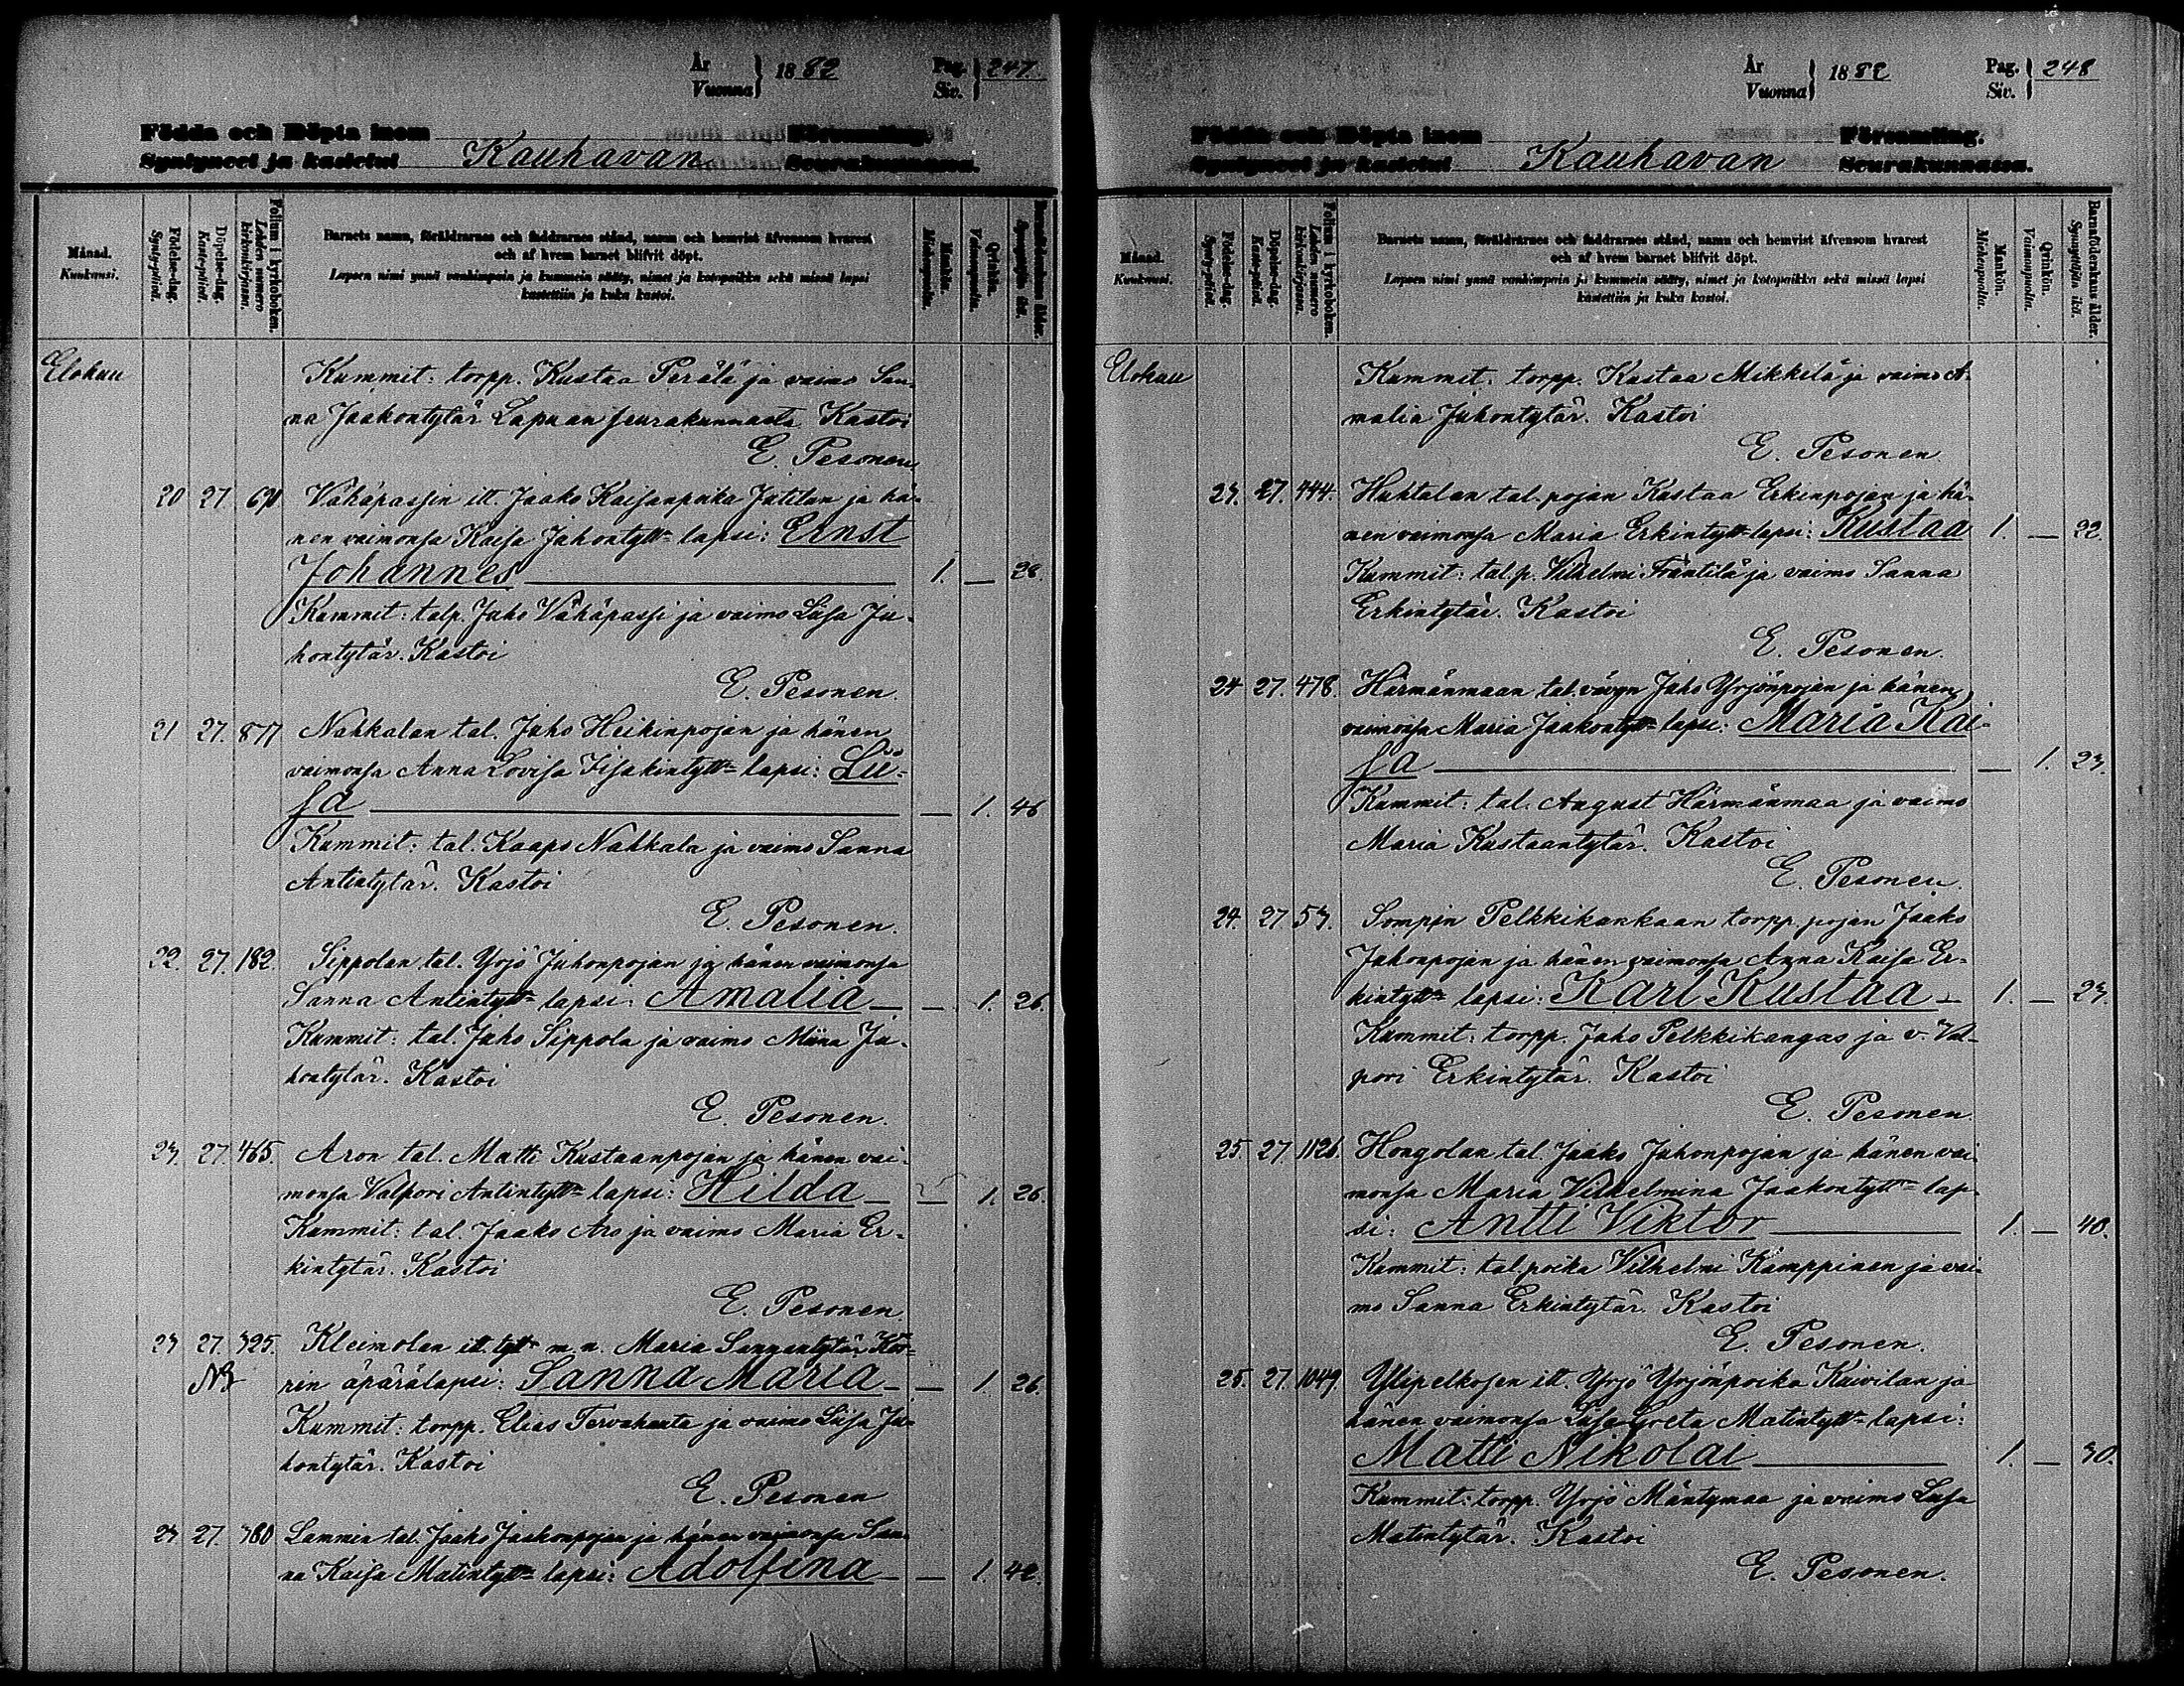 År
Vuonna } 1882
Pag.
Siv. } 247.
Födda och Döpta inom Församling.
Syntyneet ja kastetut Kauhavan Seurakunnassa.
Månad.
Kuukausi.
Födelse-dag.
Synty-päivä.
Döpelse-dag.
Kaste-päivä.
Folium i kyrkoboken.
Lehden numero kirkonkirjassa.
Barnets namn, föräldrarnes och faddrarnes stånd, namn och hemvist äfvensom hvarest
och af hvem barnet blifvit döpt.
Lapsen nimi ynnä vanhimpain ja kummein sääty, nimet ja kotopaikka sekä missä lapsi
kastettiin ja kuka kastoi.
Mankön.
Miehenpuolta.
Qvinkön.
Vaimonpuolta.
Barnaföderskans ålder.
Synnyttäjän ikä.
Elokuu Kummit: torpp. Kustaa Perälä ja vaimo San-
na Jaakontytär Lapuan seurakunnasta. Kastoi
E. Pesonen.
20 27. 691 Vähäpassin itt. Jaako Kaisanpoika Jutilan ja hä-
nen vaimonsa Kaisa Juhontytt= lapsi: Ernst
Johannes 1. — 28.
Kummit: talp. Juho Vähäpassi ja vaimo Liisa Ju-
hontytär. Kastoi
E. Pesonen.
21 27. 877 Nahkalan tal. Juho Heikinpojan ja hänen
vaimonsa Anna Lovisa Iisakintytt= lapsi: Lii-
sa — 1. 46
Kummit: tal. Kaapo Nahkala ja vaimo Sanna
Antintytär. Kastoi
E. Pesonen.
22. 27. 182. Sippolan tal. Yrjö Juhonpojan ja hänen vaimonsa
Sanna Antintytt= lapsi: Amalia — — 1. 26.
Kummit: tal. Juho Sippola ja vaimo Miina Ju-
hontytär. Kastoi
E. Pesonen.
23. 27. 465. Aron tal. Matti Kustaanpojan ja hänen vai-
monsa Valpori Antintytt= lapsi: Hilda — — 1. 26.
Kummit: tal. Jaako Aro ja vaimo Maria Er-
kintytär. Kastoi
E. Pesonen.
23 27. 325. Kleimolan itt. tytt m. n. Maria Sannantytär Kor-
NB rin äpärälapsi: Sanna Maria — — 1. 26.
Kummit: torpp. Elias Tervahauta ja vaimo Liisa Ju-
hontytär. Kastoi
E. Pesonen
23 27. 380 Lammin tal. Jaako Jaakonpojan ja hänen vaimonsa San-
na Kaisa Matintytt= lapsi: Adolfina — — 1. 42.
År
Vuonna } 1882
Pag.
Siv. } 248
Födda och Döpta inom Församling.
Syntyneet ja kastetut Kauhavan Seurakunnassa.
Månad.
Kuukausi.
Födelse-dag.
Synty-päivä.
Döpelse-dag.
Kaste-päivä.
Folium i kyrkoboken.
Lehden numero kirkonkirjassa.
Barnets namn, föräldrarnes och faddrarnes stånd, namn och hemvist äfvensom hvarest
och af hvem barnet blifvit döpt.
Lapsen nimi ynnä vanhimpain ja kummein sääty, nimet ja kotopaikka sekä missä lapsi
kastettiin ja kuka kastoi.
Mankön.
Miehenpuolta.
Qvinkön.
Vaimonpuolta.
Barnaföderskans ålder.
Synnyttäjän ikä.
Elokuu Kummit: torpp. Kustaa Mikkelä ja vaimo A-
malia Juhontytär. Kastoi
E. Pesonen
23. 27. 444. Huhtalan tal. pojan Kustaa Erkinpojan ja hä-
nen vaimonsa Maria Erkintytt= lapsi: Kustaa 1. — 22.
Kummit: tal. p. Vilhelmi Fräntilä ja vaimo Sanna
Erkintytär. Kastoi
E. Pesonen.
24 27. 478. Härmänmaan tal. vävyn Juho Yrjönpojan ja hänen
vaimonsa Maria Jaakontytt= lapsi: Maria Kai-
sa — 1. 23.
Kummit: tal. August Härmänmaa ja vaimo
Maria Kustaantytär. Kastoi
E. Pesonen.
24. 27. 53. Sompin Pelkkikankaan torpp. pojan Jaako
Juhonpojan ja hänen vaimonsa Anna Kaisa Er-
kintytt= lapsi: Karl Kustaa — 1. — 23.
Kummit: torpp. Juho Pelkkikangas ja v. Val-
pori Erkintytär. Kastoi
E. Pesonen.
25 27. 1126. Hongolan tal. Jaako Juhonpojan ja hänen vai-
monsa Maria Vilhelmina Jaakontytt= lap-
si: Antti Viktor 1. — 40.
Kummit: tal. poika Vilhelmi Kamppinen ja vai-
mo Sanna Erkintytär. Kastoi
E. Pesonen.
25. 27. 1049. Ylipelkosen itt. Yrjö Yrjönpoika Kaivilan ja
hänen vaimonsa Liisa Greta Matintytt= lapsi:
Matti Nikolai 1. — 30.
Kummit: torpp. Yrjö Mäntymaa ja vaimo Liisa
Matintytär. Kastoi
E. Pesonen.